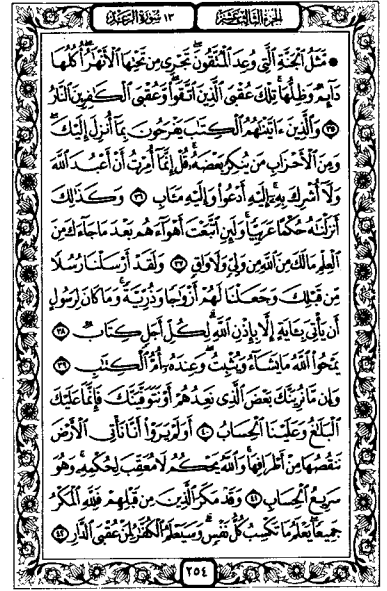 الجزء الثالث عشر ١٣ سورة الرعد
۞ مَّثَلُ الْجَنَّةِ الَّتِي وُعِدَ الْمُتَّقُونَ ۖ تَجْرِي مِن تَحْتِهَا الْأَنْهَارُ ۖ أُكُلُهَا
دَائِمٌ وَظِلُّهَا ۚ تِلْكَ عُقْبَى الَّذِينَ اتَّقَوا ۖ وَّعُقْبَى الْكَافِرِينَ النَّارُ
٣٥ وَالَّذِينَ ءَاتَيْنَاهُمُ الْكِتَابَ يَفْرَحُونَ بِمَا أُنزِلَ إِلَيْكَ ۖ
وَمِنَ الْأَحْزَابِ مَن يُنكِرُ بَعْضَهُ ۚ قُلْ إِنَّمَا أُمِرْتُ أَنْ أَعْبُدَ اللَّهَ
وَلَا أُشْرِكَ بِهِ ۚ إِلَيْهِ أَدْعُوا وَإِلَيْهِ مَـَٔابِ ٣٦ وَكَذَٰلِكَ
أَنزَلْنَاهُ حُكْمًا عَرَبِيًّا ۚ وَلَئِنِ اتَّبَعْتَ أَهْوَاءَهُم بَعْدَ مَا جَاءَكَ مِنَ
الْعِلْمِ مَا لَكَ مِنَ اللَّهِ مِن وَلِيٍّ وَلَا وَاقٍ ٣٧ وَلَقَدْ أَرْسَلْنَا رُسُلًا
مِّن قَبْلِكَ وَجَعَلْنَا لَهُمْ أَزْوَاجًا وَذُرِّيَّةً ۚ وَمَا كَانَ لِرَسُولٍ
أَن يَأْتِيَ بِـَٔايَةٍ إِلَّا بِإِذْنِ اللَّهِ ۗ لِكُلِّ أَجَلٍ كِتَابٌ ٣٨
يَمْحُوا اللَّهُ مَا يَشَاءُ وَيُثْبِتُ ۖ وَعِندَهُ أُمُّ الْكِتَابِ ٣٩
وَإِن مَّا نُرِيَنَّكَ بَعْضَ الَّذِي نَعِدُهُمْ أَوْ نَتَوَفَّيَنَّكَ فَإِنَّمَا عَلَيْكَ
الْبَلَاغُ وَعَلَيْنَا الْحِسَابُ ٤٠ أَوَلَمْ يَرَوْا أَنَّا نَأْتِي الْأَرْضَ
نَنقُصُهَا مِنْ أَطْرَافِهَا ۚ وَاللَّهُ يَحْكُمُ لَا مُعَقِّبَ لِحُكْمِهِ ۚ وَهُوَ
سَرِيعُ الْحِسَابِ ٤١ وَقَدْ مَكَرَ الَّذِينَ مِن قَبْلِهِمْ فَلِلَّهِ الْمَكْرُ
جَمِيعًا ۖ يَعْلَمُ مَا تَكْسِبُ كُلُّ نَفْسٍ ۗ وَسَيَعْلَمُ الْكُفَّارُ لِمَنْ عُقْبَى الدَّارِ ٤٢
٢٥٤